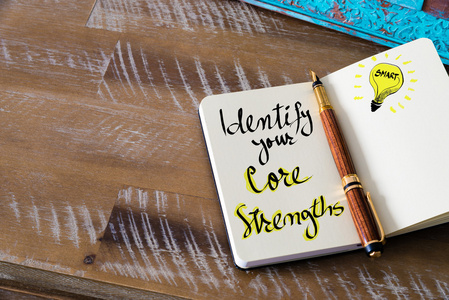 Identify
your
Core
Strengths
SMART